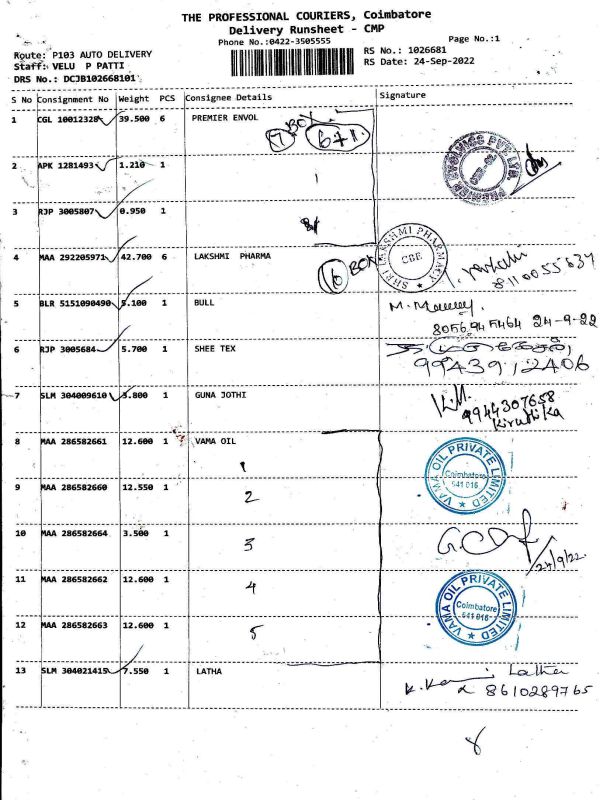 THE PROFESSIONAL COURIERS, Coimbatore
Delivery Runsheet - CMP
Phone No.:0422-3505555
Page No.:1
Route: P103 AUTO DELIVERY
RS No.: 1026681
Staff: VELU P PATTI
RS Date: 24-Sep-2022
DRS No.: DCJB102668101
S No Consignment No Weight PCS Consignee Details Signature
1 CGL 10012328 39.500 6 PREMIER ENVOL
7 BOX 6+1.
2 APK 1281493 1.210 1
3 RJP 3005807 0.950 1
4 MAA 292205971 42.700 6 LAKSHMI PHARMA
6 BOX
SHRI LAKSHMI PHARMACY CBE
5 BLR 5151090490 5.100 1 BULL
8056945464 24-9-22
6 RJP 3005684 5.700 1 SHEE TEX
9943912406
7 SLM 304009610 3.800 1 GUNA JOTHI
9944307658
Kiruthika
8 MAA 286582661 12.600 1 VAMA OIL
1
VAMA OIL PRIVATE LIMITED
Coimbatore
641 016
9 MAA 286582660 12.550 1
2
10 MAA 286582664 3.500 1
3
24/9/22
11 MAA 286582662 12.600 1
4
VAMA OIL PRIVATE LIMITED
Coimbatore
641 016
12 MAA 286582663 12.600 1
5
13 SLM 304021415 7.550 1 LATHA
Latha
8610289765
8